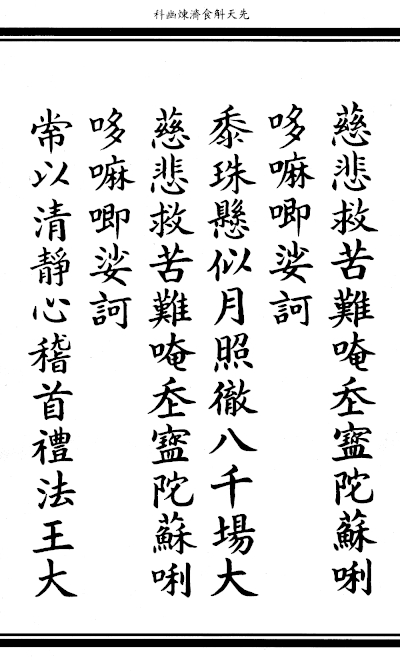 先天斛食濟煉幽科
慈悲救苦難唵陀蘇唎
哆嘛唧娑訶
黍珠懸似月照徹八千場大
慈悲救苦難唵陀蘇唎
哆嘛唧娑訶
常以清靜心稽首禮法王大